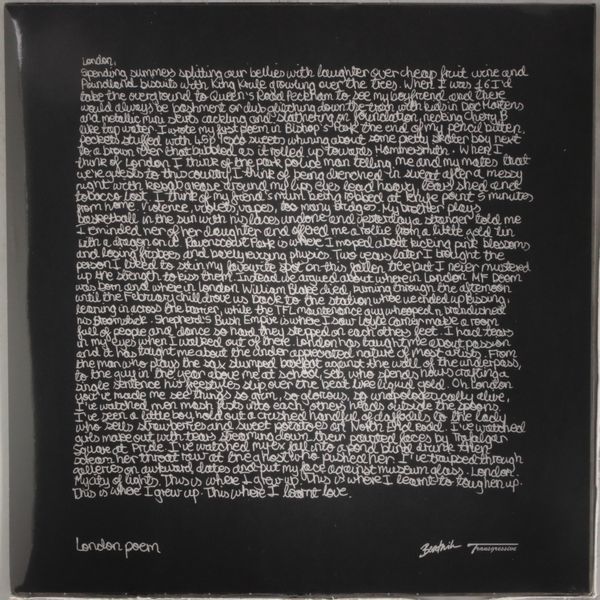 London,
Spending summers splitting our bellies with laughter over cheap fruit wine and
Poundland biscuits with King Krule growling over the trees. When I was 16 I'd
take the overground to Queen's Road Peckham to see my boyfriend, and there
would always be bashment or dub glitching down the train with kids in Doc Martens
and metallic mini skirts cackling and slathering on foundation, necking Cherry B
like tap water. I wrote my first poem in Bishop's Park, the end of my pencil bitten,
pockets stuffed with 65p Tesco sweets, whining about some pretty skater boy next
to a brown river that bubbled as it rolled up towards Hammersmith. When I
think of London I think of the park police man telling me and my mates that
we're guests to this country. I think of being drenched in sweat after a messy
night with kebab grease around my lips, eyes lead heavy, tears shed and
tobacco lost. I think of my friend's mum being robbed at knife point 5 minutes
from home. Violence, violets, vapes, too many bridges. My brother plays
basketball in the sun with his laces undone and yesterday a stranger told me
I reminded her of her daughter and offered me a rollie from a little gold tin
with a dragon on it. Ravenscourt Park is where I moped about kicking pink blossoms
and losing frisbees and barely revising physics. Two years later I brought the
person I liked to sit in my favourite spot on this fallen tree but I never mustered
up the strength to kiss them. Instead we argued about where in London MF Doom
was born and where in London William Blake died, running through the afternoon
until the February chill drove us back to the station where we ended up kissing,
leaning in across the barrier, while the TFL maintenance guy whooped n brandished
his broomstick. Shepherd's Bush Empire is where I saw Loyle Carner make a room
full of people and dance so hard they stepped on each others feet. I had tears
in my eyes when I walked out of there. London has taught me about passion
and it has taught me about the under appreciated nature of most artists. From
the man who plays the sax slumped barefoot against the wall of the underpass,
to the guy in the year above me at school, Seb, who spends hours crafting a
single sentence his freestyles slip over the beat like liquid gold. Oh London
you've made me see things so grim, so glorious, so unapologetically alive,
I've watched men mash fists into each others heads outside the spoons.
I've seen a little boy hold out a crushed handful of daffodils to the lady
who sells strawberries and sweet potatoes off North End Road. I've watched
girls make out with tears streaming down their painted faces by Trafalgar
Square at Pride. I've watched my ex fall into a pond blind drunk then
clean her throat raw at the ghost who pushed her. I've traipsed through
galleries on awkward dates and put my face against museum glass. London.
My city of lights. This is where I grew up. This is where I learnt to toughen up.
This is where I grew up. This where I learnt love.
London poem
Beatnik Transgressive